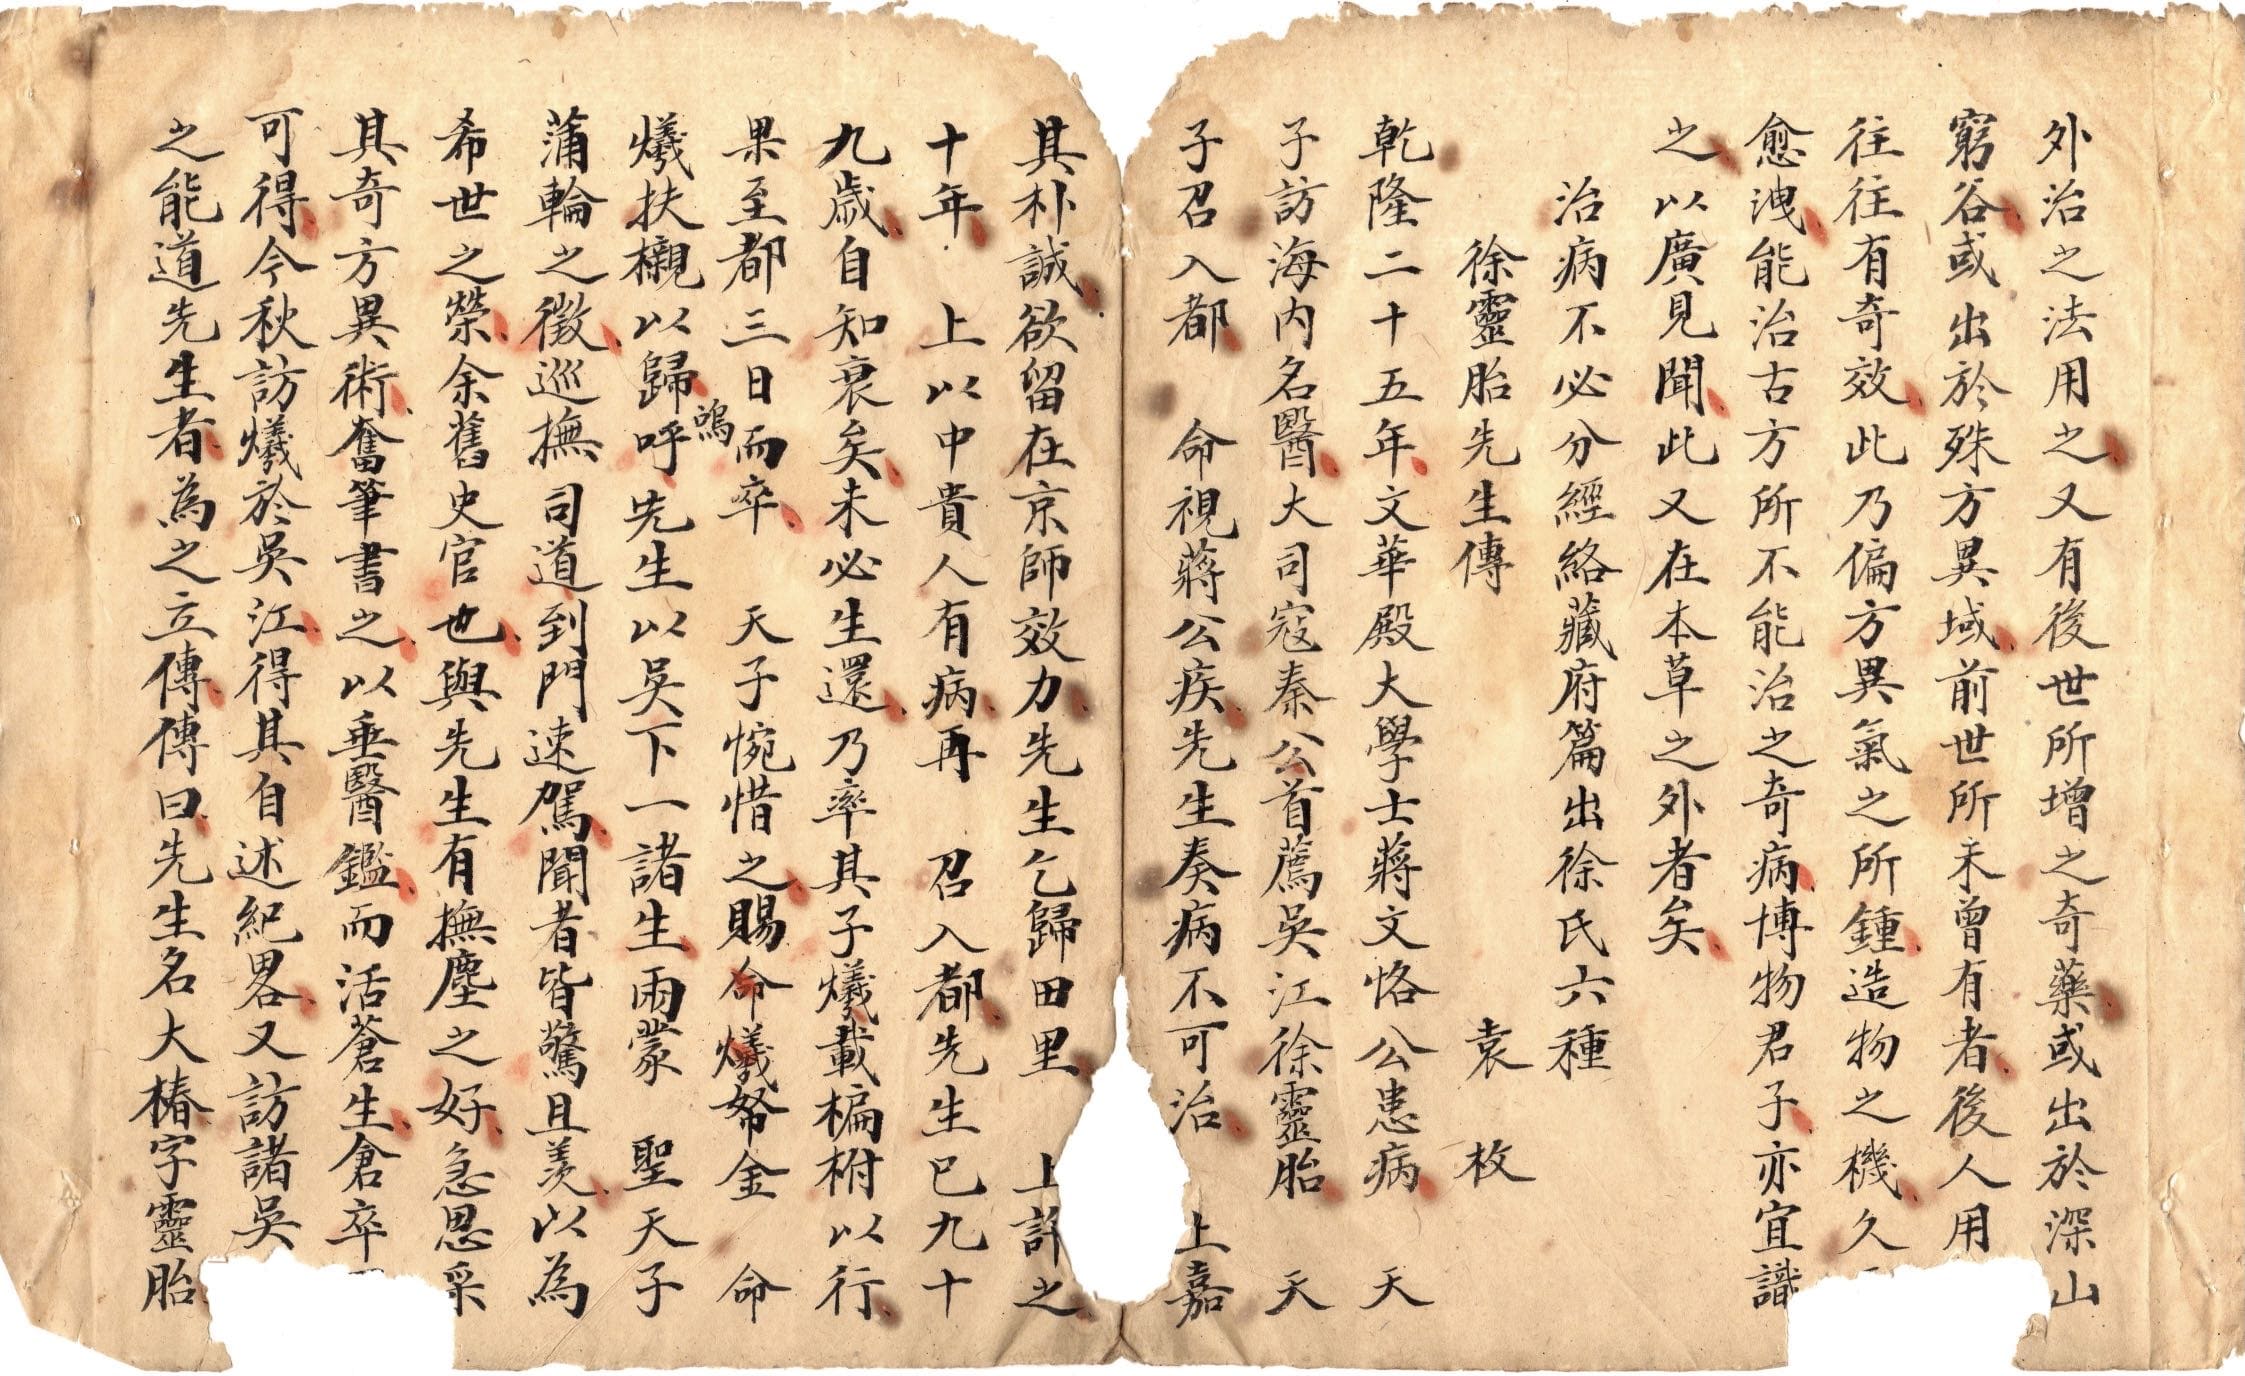 外治之法用之又有後世所增之奇藥或出於深山
窮谷或出於殊方異域前世所未曾有者後人用
往往有奇效此乃偏方異氣之所鍾造物之機久
愈洩能治古方所不能治之奇病博物君子亦宜識
之以廣見聞此又在本草之外者矣
治病不必分經絡藏府篇出徐氏六種
徐靈胎先生傳 袁 枚
乾隆二十五年文華殿大學士蔣文恪公患病 天
子訪海內名醫大司寇秦公首薦吳江徐靈胎 天
子召入都 命視蔣公疾先生奏病不可治 上嘉
其朴誠欲留在京師效力先生乞歸田里 上許之
十年 上以中貴人有病再 召入都先生已九十
九歲自知衰矣未必生還乃率其子爔載楄柎以行
果至都三日而卒 天子惋惜之賜命爔帑金 命
爔扶櫬以歸嗚呼先生以吳下一諸生兩蒙 聖天子
蒲輪之徵巡撫司道到門速駕聞者皆驚且羨以為
希世之榮余舊史官也與先生有撫塵之好急思采
其奇方異術奮筆書之以垂醫鑑而活蒼生倉卒
可得今秋訪爔於吳江得其自述紀畧又訪諸吳
之能道先生者為之立傳傳曰先生名大椿字靈胎